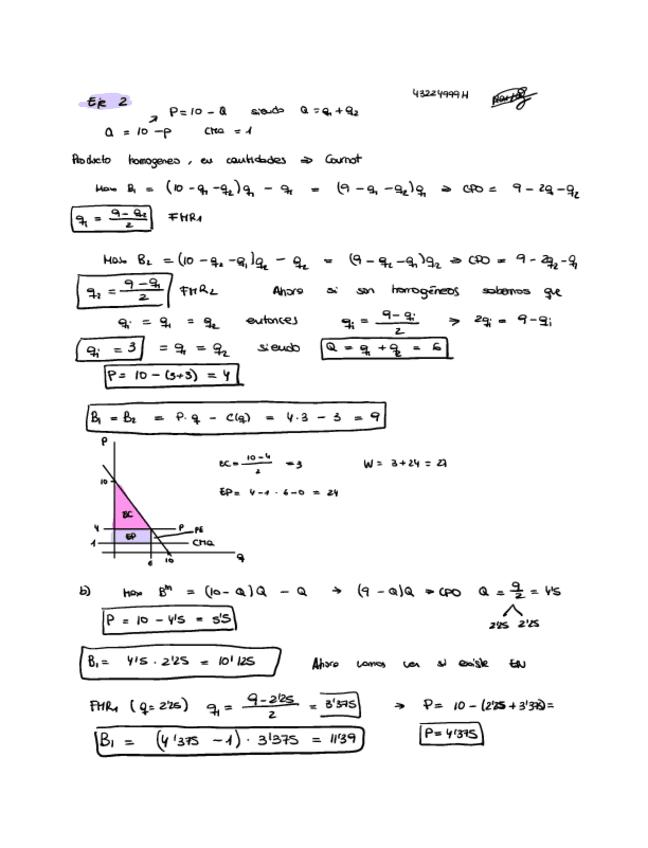 Eje 2
43224999H
P = 10 - Q siendo Q = q1 + q2
Q = 10 - P CMa = 1
Producto homogeneo, en cantidades ⇒ Cournot
Max B1 = (10 - q1 - q2)q1 - q1 = (9 - q1 - q2)q1 ⇒ CPO = 9 - 2q1 - q2
q1 = (9 - q2)/2 FMR1
Max B2 = (10 - q2 - q1)q2 - q2 = (9 - q2 - q1)q2 ⇒ CPO = 9 - 2q2 - q1
q2 = (9 - q1)/2 FMR2 Ahora si son homogéneos sabemos que
qi = q1 = q2 entonces qi = (9 - qi)/2 ⇒ 2qi = 9 - qi
qi = 3 = q1 = q2 siendo Q = q1 + q2 = 6
P = 10 - (3+3) = 4
B1 = B2 = P · q - C(q) = 4 · 3 - 3 = 9
P
EC = (10 - 4)/2 = 3 W = 3 + 24 = 27
10
EP = 4 - 1 · 6 - 0 = 24
EC
4 P PE
EP
1 CMa
6 10 q
b) Max Bm = (10 - Q)Q - Q → (9 - Q)Q ⇒ CPO Q = 9/2 = 4'5
P = 10 - 4'5 = 5'5
2'25 2'25
B1 = 4'5 · 2'25 = 10'125 Ahora vamos ver si existe EN
FMR1 (q = 2'25) q1 = (9 - 2'25)/2 = 3'375 → P = 10 - (2'25 + 3'375) =
B1 = (4'375 - 1) · 3'375 = 11'39 P = 4'375